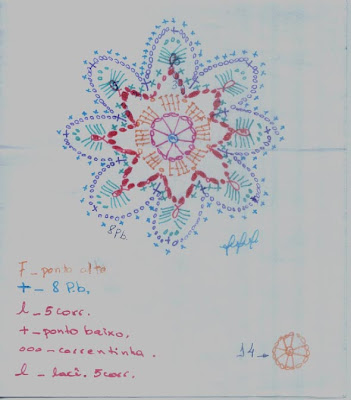 8 P.b.
F - ponto alto
+ - 8 P.b.
l - 5 corr.
+ - ponto baixo.
ooo - correntinha.
l - laci. 5 corr.
14